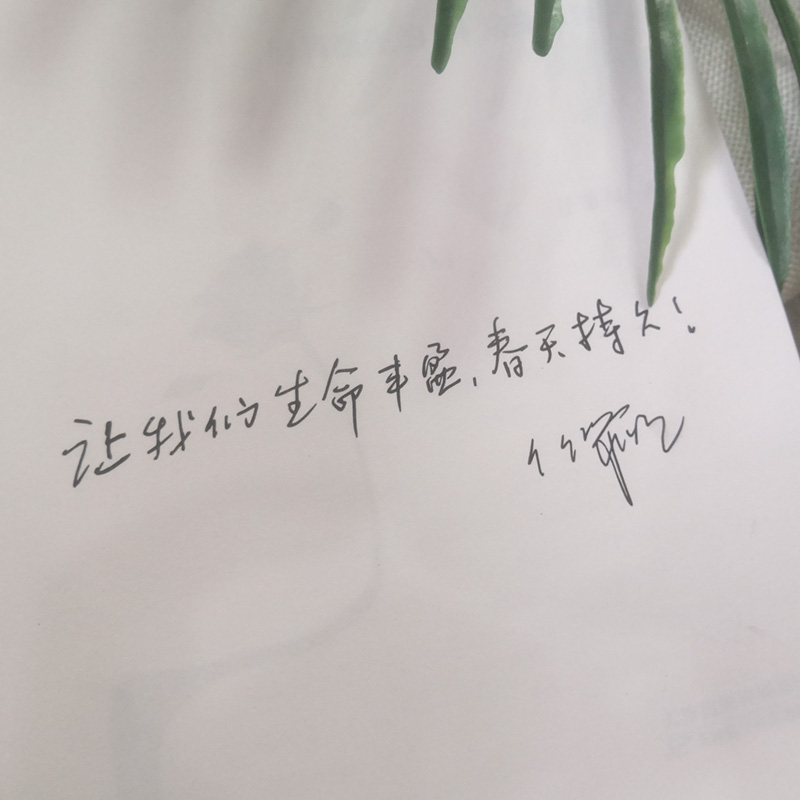 让我们生命丰盈，春天持久！